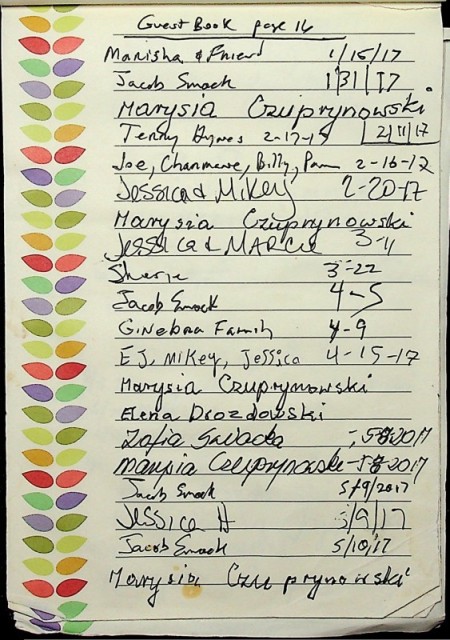 Guest Book page 16
Manisha & Friend 1/15/17
Jacob Smock 1/31/17
Marysia Czuprynowski
Terry Hynes 2-17-17 2/11/17
Joe, Billy, Pam 2-16-17
Jessica & Mikey 2-20-17
Marysia Czuprynowski
Jessica & Marcie 3-11
Sherie 3-22
Jacob Smock 4-5
Ginebra Family 4-9
EJ, Mikey, Jessica 4-15-17
Marysia Czuprynowski
Elena Drozdowski
Zofia 2017
Marysia Czuprynowski 2017
Jacob Smock 5/9/2017
Jessica H 5/9/17
Jacob Smock 5/10/17
Marysia Czuprynowski